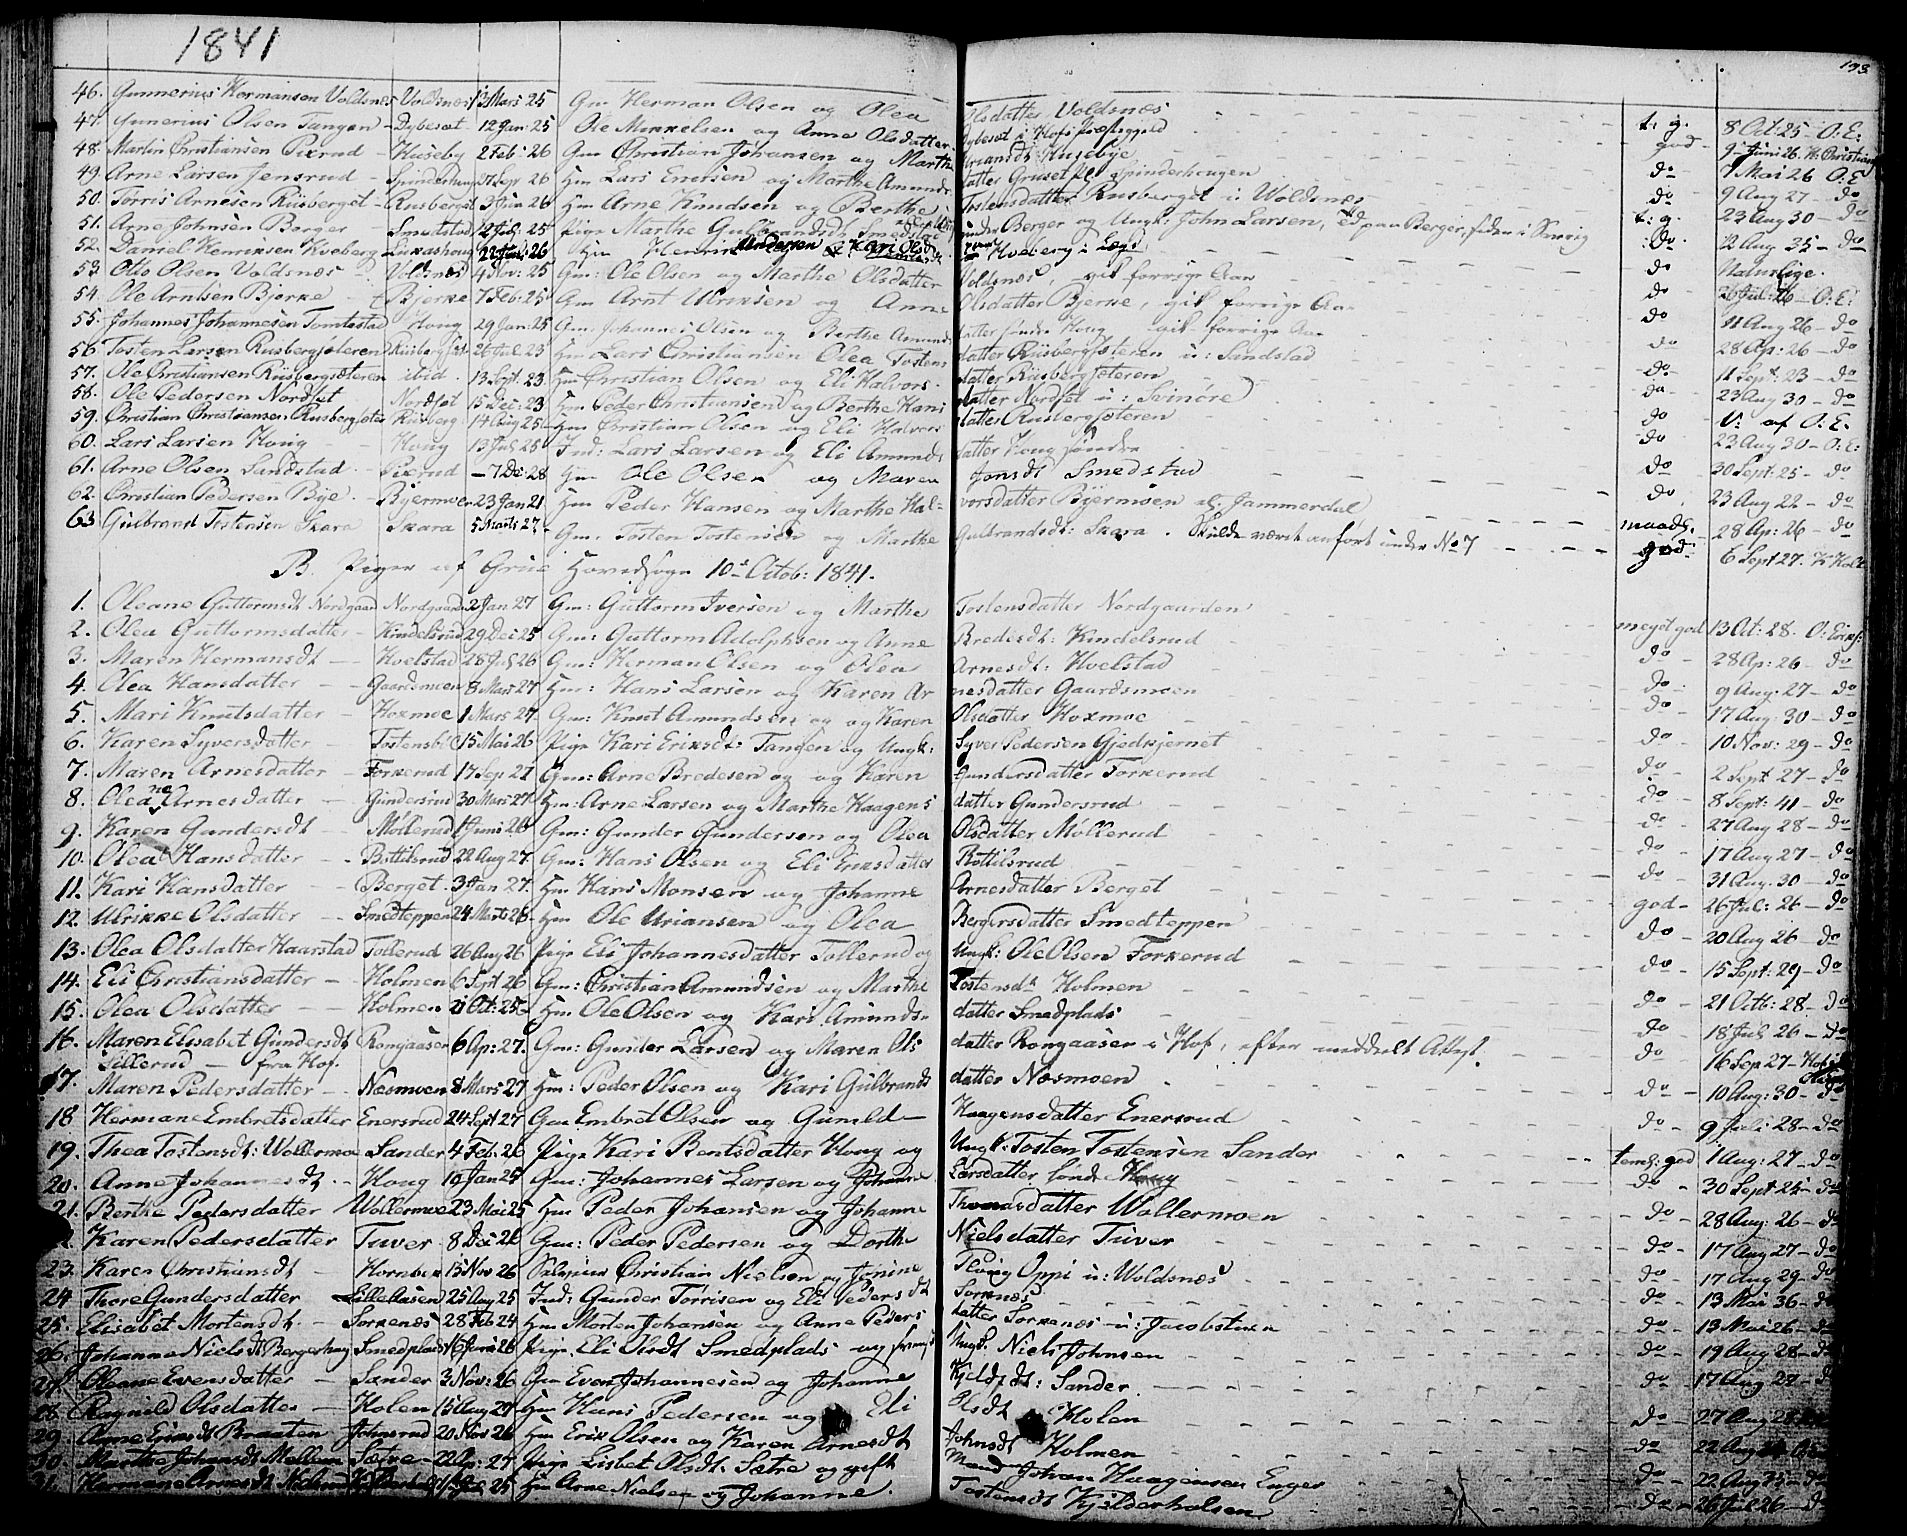 1841
193.
46. Gunnerius Hermansen Voldsnes Voldsnes 13 Mars 25 Gm Herman Olsen og Olea Olsdatter Voldsnæs t: g. 8 Oct: 25 - O. E:
47. Gunerius Olsen Tangen - Dybeset - 12 Jan: 25 Ole Mikkelsen og Anne Olsdatter Dybeset i Hofs Præstegjeld god 9 Juni 26.
48. Martin Christiansen - Huseby 2 Feb: 26 Gm Christian Johansen og Marthe Husebye do 7 Mai 26 O. E.
49. Arne Larsen Jensrud - Spinderhaug 17 Sept 26 Hm Lars Enersen og Marthe Amunds datter Gruset Spinderhaugen do 9 Aug 27 - do
50. Torris Arnesen Riisberget - Rusberget 3 Jun 26 Hm Arne Knudsen og Berthe Tostensdatter Rusberget u: Woldsnæs t: g. 23 Aug 30 - do
51. Arne Johnsen Berger - Smedstad 12 Juli 25 Pige Marthe Gulbrandsdt Smedstad under Berger og Ungk: John Larsen, paa Berger, siden i :do: 12 Aug 35 - do
52. Daniel Henriksen Hveberg 22 Juni 26 Hm Henrik Andersen & Kari Olsdt Hveberg i do Naturlige.
53. Otto Olsen Voldsnæs - Voldsnæs 4 Nov: 25 Gm: Ole Olsen og Marthe Olsdatter Voldsnæs, gik forrige Aar do 26 Jul: 26 - O. E:
54. Ole Arntsen Bjerke - Bjerke 7 Feb: 25 Gm Arnt Ulriksen og Anne Olsdatter Bjerke, gik forrige Aar do 11 Aug 26 - do
55. Johannes Johannesen Tomtestad Houg 29 Jan: 25 Gm: Johannes Olsen og Berthe Amunds datter søndre Houg gik forrige Aar do 28 Ap: 26 - do
56. Tosten Larsen Rusbergsæteren 26 Jul. 23 Hm Lars Christiansen Olea Tostens datter Riisbergsæteren u: Sandstad do 11 Sept: 23 - do
57. Ole Christiansen Riisbergsæteren ibid. 13 Sept. 23 Hm Christian Olsen og Eli Halvors datter Riisbergsæteren do 23 Aug 30 - do
58. Ole Pedersen Nordset Nordset 15 Dec: 23 Hm Peder Christiansen og Berthe Hans datter Nordset u: Svinøre do V: af O: E:
59. Christian Christiansen Rusbergsæter Rusberg 14 Aug 25 - Hm Christian Olsen og Eli Halvors datter Rusbergsæteren do 23 Aug 30 - O: E:
60. Lars Larsen Houg - Houg 13 Jul 25 Ind: Lars Larsen og Eli Amunds datter Houg søndre do 30 Sept: 25 - do
61. Arne Olsen Sandstad - 7 De: 28 Gm Ole Olsen og Maren Jonsdt Smedstad do 23 Aug 22 - do
62. Christian Pedersen Bye. - Byermoen 23 Jan 21 Hm Peder Hansen og Marthe Hal= vorsdatter Byermoen al: Jammerdal maadl. 28 Ap: 26 - do
63 Gulbrand Tostensen Skara Skara 5 Marts 27 - Gm. Tosten Tostensen og Marthe Gulbrandsdt: Skara. Skulde været anført under No 7 god 6 Sept 27.
B. Piger af Grue Hovedsogn 10de Octob: 1841.
1. Oleane Guttormsdt Nordgaard Nordgaarden 2 Jan 27 Gm: Guttorm Iversen og Marthe Tostensdatter Nordgaarden meget god 13 Oct: 28. O: Eriks:
2. Olea Guttormsdatter - Kindelsrud 29 Dec 25 Gm: Guttorm Adolphsen og Anne Bredesdt: Kindelsrud do 28 Ap: 26 - do
3. Maren Hermansdt - Hvelstad 28 Jul 26 Gm: Herman Olsen og Olea Arnesdt: Hvelstad do 9 Aug. 27 - do
4. Olea Hansdatter - Gaardsmoen 8 Mars 27 Hm: Hans Larsen og Karen Ar nesdatter Gaardsmoen do 17 Aug. 30 - do
5. Mari Knutsdatter - Hoxmoe 1 Mars 27. Gm: Knut Amundsen og og Karen Olsdatter Hoxmoe do 10 Nov: 29 - do
6. Karen Syversdatter - 15 Mai 26 Pige Kari Eriksdt: Tangen og Ungk: Syver Pedersen Gjedtjernet do 2 Sept 27 - do
7. Maren Arnesdatter - Forkerud 17 Sep 27 Gm: Arne Bredesen og og Karen Gundersdatter Forkerud do 8 Sept: 41 - do
8. Olea Arnesdatter - Gundersrud 30 Mars 27 Hm: Arne Larsen og Marthe Haagens datter Gundersrud do 27 Aug 28 - do
9. Karen Gundersdt - Møllerud 1 Juni 26 Gm: Gunder Gundersen og Olea Olsdatter Møllerud do 17 Aug 27 - do
10. Olea Hansdatter - Bottilsrud 22 Aug 27. Gm: Hans Olsen og Eli Eriksdatter Bottilsrud do 31 Aug. 30 - do
11. Kari Hansdatter - Berget 3 Jan 27. Hm Hans Monsen og Johanne Arnesdatter Berget god - 26 Jul: 26 - do
12. Ulrikke Olsdatter - Smedteppen 24 Marts 26 - Hm Ole Uriansen og Olea Bergersdatter Smedteppen do 20 Aug 26 - do
13. Olea Olsdatter Haarstad Tollerud 26 Aug 26 Pige Eli Johannesdatter Tollerud og Ungk: Ole Olsen Forkerud do 15 Sept: 29 - do
14. Eli Christiansdatter - Holmen 6 Sept 26 Gm: Christian Amundsen og Marthe Tostensdt Holmen do 21 Octb: 28 - do
15. Olea Olsdatter - Holmen Oct: 25 - Hm Ole Olsen og Kari Amunds= datter Smedplads do 18 Jul 26 - do
16. Maren Elisabet Gundersdt Rongaasen 6 Ap: 27. Gm: Gunder Larsen og Maren Ols datter Rongaasen i Hof, efter meddelt Attest. do 16 Sep 27 - Hof
Lillerud - fra Hof.
17. Maren Pedersdatter - Næsmoen 8 Mars 27 Hm: Peder Olsen og Kari Gulbrands datter Næsmoen do 10 Aug: 30 - do
18 Hermane Embretsdatter Enersrud 24 Sept 27 Gm Embret Olsen og Gunild - Haagensdatter Enersrud do 9 Juli 28 - do
19. Thea Tostensdt: Wollermoe Sander 4 Feb: 26 Pige Kari Berntsdatter Houg og Ungk: Tosten Tostensen Sander teml: god 1 Aug: 27 - do
20. Anne Johannesdt - Houg 10 Jan 25 Gm: Johannes Larsen og Johanne Larsdatter sønd: Houg do 30 Sept 25 - do
21. Berthe Pedersdatter Wollermoe 23 Mai 25 Hm Peder Johansen og Johanne Thomasdatter Wollermoen do 28 Aug: 26 - do
Karen Pedersdatter Tuver 8 Dec 26 Gm: Peder Pedersen og Dorthe Nielsdatter Tuver do 17 Aug 27 - do
23. Karen Christiansdt Hornber 13 Nov 26 Christian Nielsen og Jonine Oppi u: Woldsnæs do 17 Aug 29 - do
24 Thore Gundersdatter Lilleaasen 25 Aug 25 Ind: Gunder Torrisen og Eli Pedersdt Sorknæs do 13 Mai 36 - do
25. Elisabet Mortensdt. - Sorkenæs 28 Feb 24 Hm Morten Johansen og Anne Peders datter Sorknæs u: Jacobstuen do 13 Mai 26 - do
26. Johanne Nielsdt Bergerhaug Smedplads 16 Juni 26 Pige Eli Olsdt Smedplads og Ungk. Niels Johnsen do 19 Aug 28 - do
27. Oleane Evensdatter - Sander 3 Nov: 26 Gm Even Johannesen og Johanne Kjeldsdt: Sander. do 17 Aug 28 - do
28. Ragnild Olsdatter - Holen 15 Aug 27 Hm Hans Pedersen og Eli Olsdt Holen do 27 Aug 28
29. Anne Ersdt Braaten Johnsrud 20 Nov 26 Hm Erik Olsen og Karen Arnesdt Johnsdt Holmen do
30 Marthe Johansdt Mellum Sætre - 22 Ap: 27 Pige Lisbet Olsdt. Sætre og gift Mand Johan Haagensen Enger do 22. Aug 35 - do
31. Hermane Arnesdt 25 Hm Arne Nielsen og Johanne Tostensdt Kjilderholsen do 26 Jul 26 - do